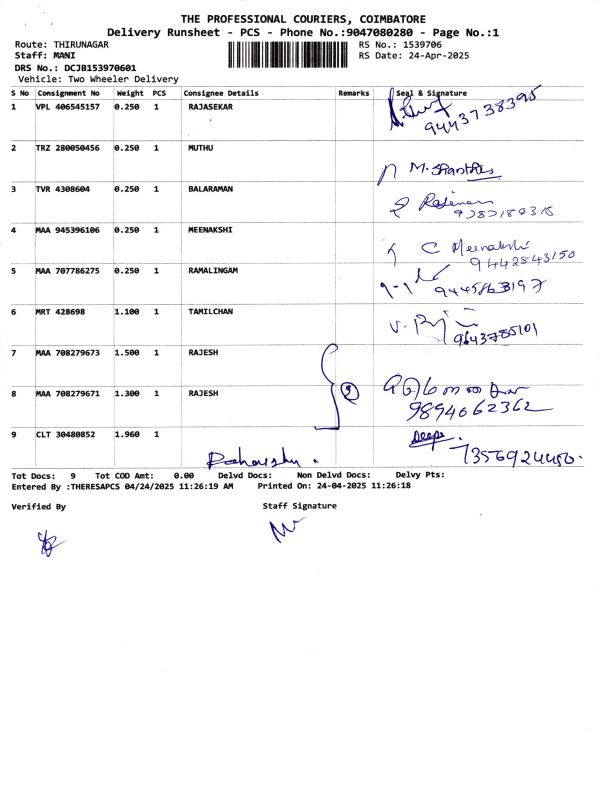 THE PROFESSIONAL COURIERS, COIMBATORE
Delivery Runsheet - PCS - Phone No.:9047080280 - Page No.:1
Route: THIRUNAGAR RS No.: 1539706
Staff: MANI RS Date: 24-Apr-2025
DRS No.: DCJB153970601
Vehicle: Two Wheeler Delivery
S No Consignment No Weight PCS Consignee Details Remarks Seal & Signature
1 VPL 406545157 0.250 1 RAJASEKAR
9443738395
2 TRZ 280050456 0.250 1 MUTHU
3 TVR 4308604 0.250 1 BALARAMAN
4 MAA 945396106 0.250 1 MEENAKSHI C Meenakshi
9442843150
5 MAA 707786275 0.250 1 RAMALINGAM
6 MRT 428698 1.100 1 TAMILCHAN
9643785101
7 MAA 708279673 1.500 1 RAJESH
8 MAA 708279671 1.300 1 RAJESH
9894062362
9 CLT 30480852 1.960 1 Deepa
7356924450
Tot Docs: 9 Tot COD Amt: 0.00 Delvd Docs: Non Delvd Docs: Delvy Pts:
Entered By :THERESAPCS 04/24/2025 11:26:19 AM Printed On: 24-04-2025 11:26:18
Verified By Staff Signature